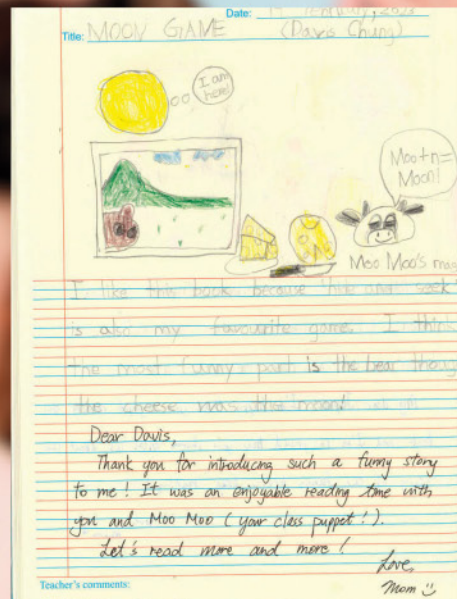 Date: February, 2023
Title: MOON GAME (Davis Chung)
I am here!
Moo+n=
Moon!
Moo Moo's mag
I like this book because hide and seek
is also my favourite game. I think
the most funny part is the bear thoug
the cheese was the moon!
Dear Davis,
Thank you for introducing such a funny story
to me! It was an enjoyable reading time with
you and Moo Moo (your class puppet!).
Let's read more and more!
Love,
Mom
Teacher's comments: